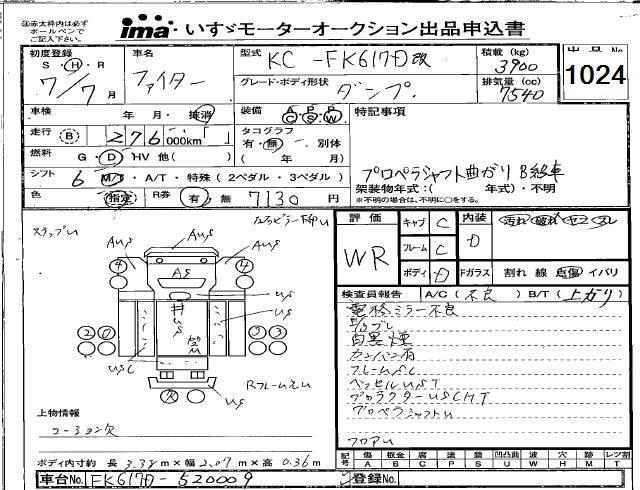 ※赤太枠内は必ず
ボールペンで
ご記入下さい。
ima いすゞモーターオークション出品申込書
初度登録
S・H・R
7/7月
車名
ファイター
型式
KC-FK617D改
グレード・ボディ形状
ダンプ
積載 (kg)
3900
排気量 (cc)
7540
1024
車検 年 月・抹消
装備 A/C P/S P/W
特記事項
走行 B 276000km
タコグラフ
有・無・別体
( 年 月)
燃料 G・D・HV 他( )
シフト 6 M/T・A/T・特殊(2ペダル・3ペダル)
色 指定 R券 有・無 7130円
プロペラシャフト曲がり B級車
架装物年式:( 年式)・不明
※不明の場合は、不明に○をする。
評価
WR
キャブ C
フレーム C
ボディ D
内装 D
汚れ 破れ ヤニ スレ
Fガラス 割れ 線 点傷 イバリ
検査員報告 A/C (不良) B/T (上がり)
電格ミラー不良
白黒煙
カンバン有
フレームSC
ベッセルUST
プロテクターUSCMT
プロペラシャフトU
フロアU
AUS
AUS
AS
US
US
US
USC
US
RフレームえU
上物情報
コーション欠
ボディ内寸約 長 3.38m×幅 2.07m×高 0.36m
記号 傷A 板金B 腐C 塗P 錆S 凹凸曲U 波W 穴H 跡M レツ割T
車台No. FK617D-520009
登録No.